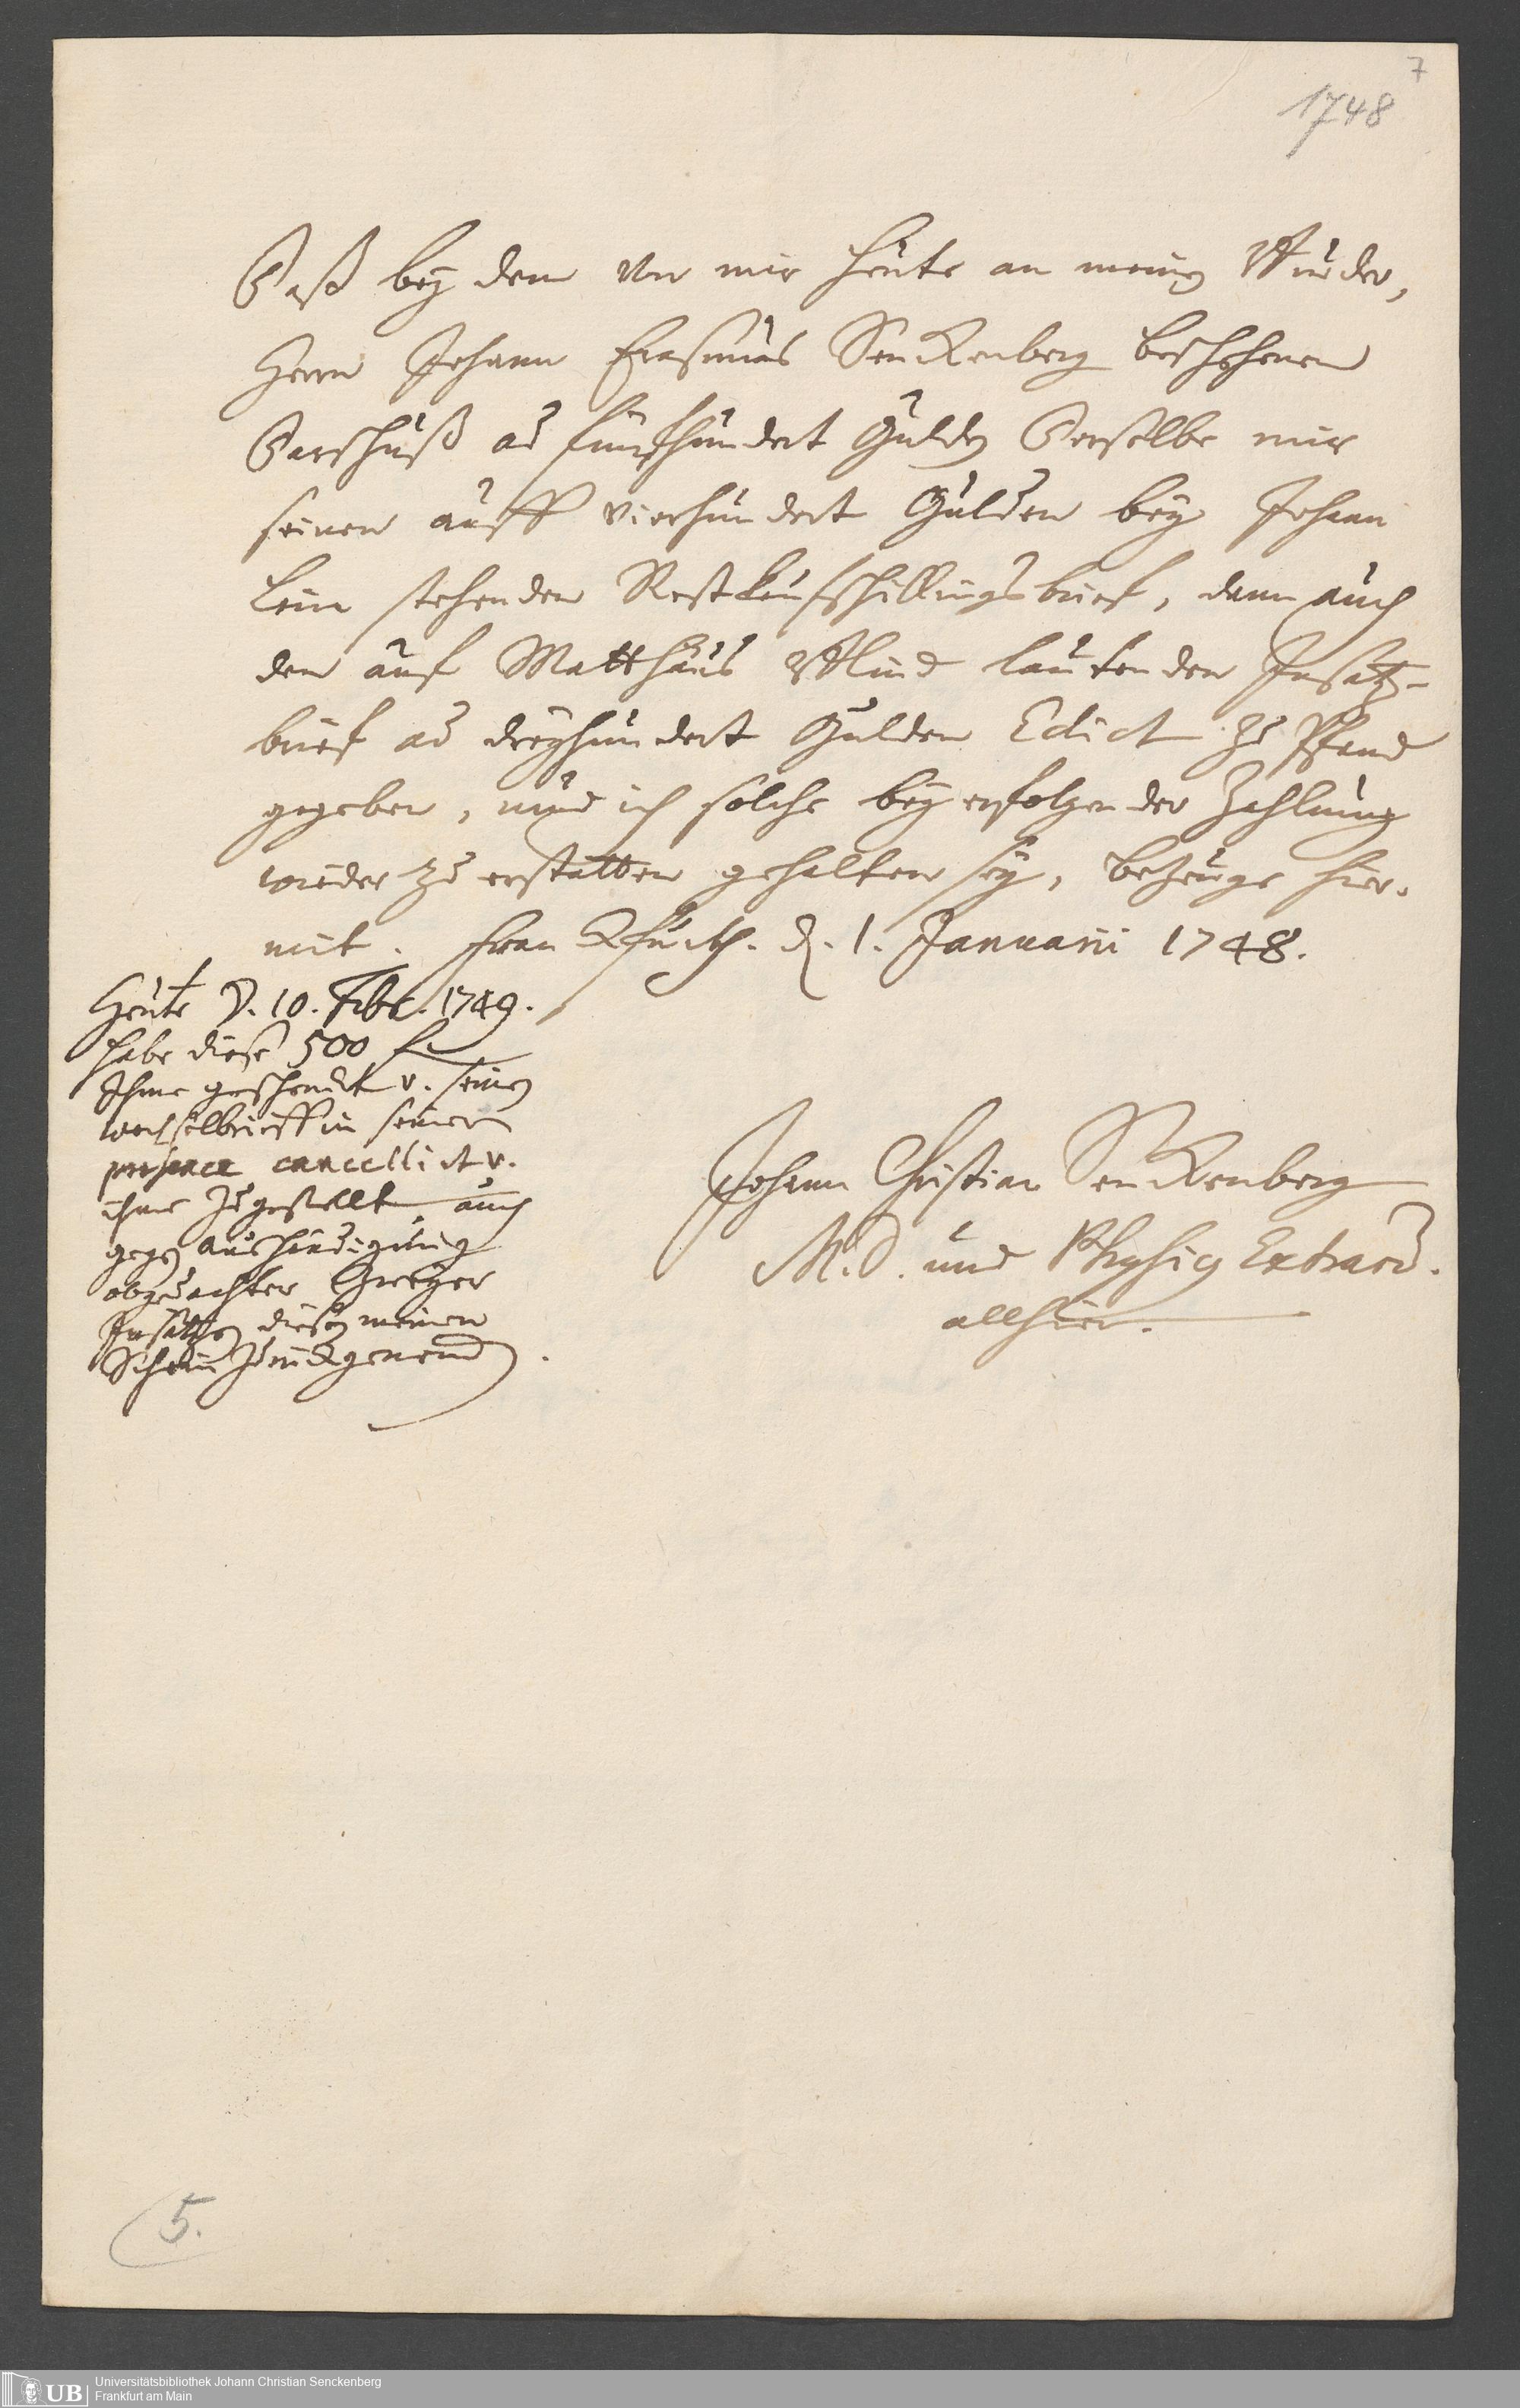 7
1748
Daß bey dem von mir heute an meinen Bruder,
Herrn Johann Erasmus Senckenberg beschehenen
Vorschuß ad fünfhundert Gulden Derselbe mir
seinen auff vierhundert Gulden bey Johann
Lein stehenden Restkaufschillingsbrief, dann auch
den auf Matthäus lautenden Insatz-
brief ad dreyhundert Gulden Edict zu Pfand
gegeben, und ich solche bey erfolgender Zahlung
wieder zu erstatten gehalten sey, bezeuge hier-
mit. Franckfurth. d. 1. Januarii 1748.
Heute d. 10. Febr. 1749.
habe diese 500 f.
Ihme geschenckt u. seinen
wechselbrieff in seiner
presence cancellirt u.
ihme zugestellt auch
gegen aushändigung
obgedachter zweyer
Insätzen diesen meinen
Schein zurückgenommen.
Johann Christian Senckenberg
M.D. und Physicus Extraord.
allhier.
5.
UB Universitätsbibliothek Johann Christian Senckenberg
Frankfurt am Main